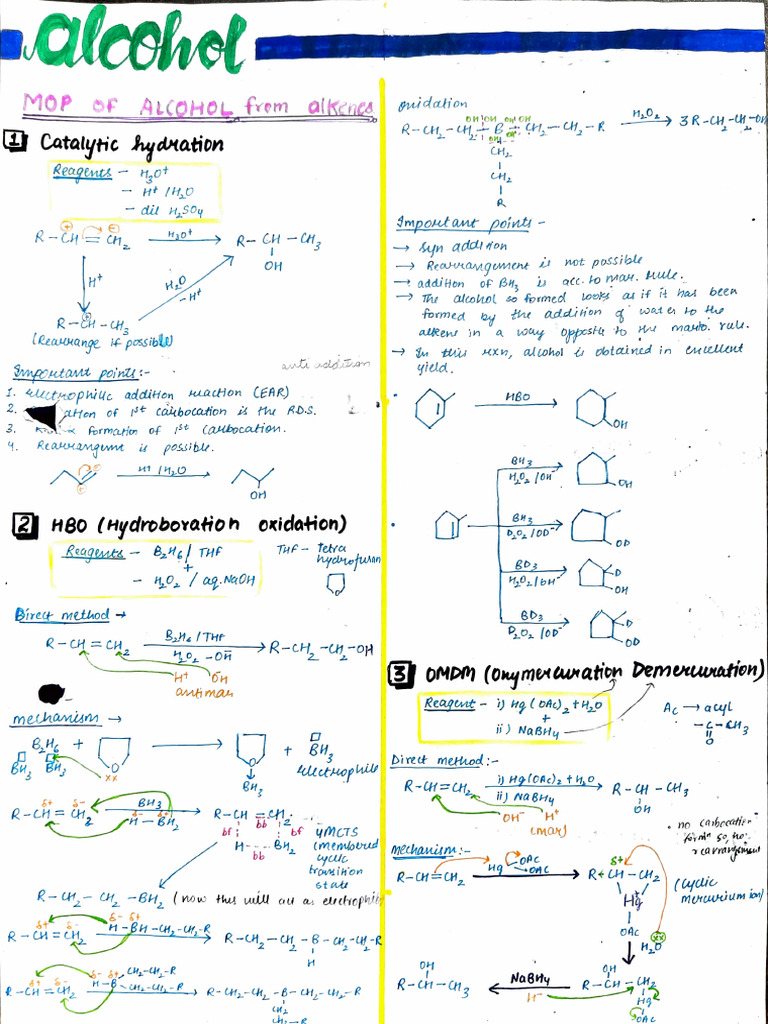 alcohol
MOP OF ALCOHOL from alkenes
1 Catalytic hydration
Reagents - H3O+
- H+ / H2O
- dil H2SO4
R-CH=CH2 H3O+ R-CH-CH3
OH
H+
H2O
-H+
R-CH-CH3
(Rearrange if possible)
anti addition
Important points:-
1. electrophilic addition reaction (EAR)
2. ation of 1st carbocation is the R.D.S.
3. α formation of 1st carbocation.
4. Rearrangeme is possible.
H+/H2O
OH
2 HBO (Hydroboration oxidation)
Reagents - B2H6 / THF
+
- H2O2 / aq. NaOH
THF - Tetra
hydrofuran
O
Direct method →
R-CH=CH2 B2H6/THF R-CH2-CH2-OH
H2O2 -OH
H+ OH
antimar
mechanism →
B2H6 + O → O + BH3
BH3 BH3 xx BH3 electrophile
R-CH=CH2 BH3 R-CH=CH2
δ+ δ- H-BH2 bf bb bf
H BH2
bb
4MCTS
(membered
cyclic
transition
state
R-CH2-CH2-BH2 (now this will act as electrophile
R-CH=CH2 H-BH-CH2-CH2-R R-CH2-CH2-B-CH2-CH2-R
H
R-CH=CH2 H-B CH2-CH2-R R-CH2-CH2-B-CH2-CH2-R
CH2-CH2-R CH2
CH2-R
oxidation
R-CH2-CH2-B-CH2-CH2-R H2O2 3R-CH2-CH2-OH
OH OH OH OH
CH2
CH2
R
Important points -
→ syn addition
→ Rearrangement is not possible
→ addition of BH3 is acc. to mar. rule.
→ The alcohol so formed looks as if it has been
formed by the addition of water to the
alkens in a way opposite to the marko. rule.
→ In this rxn, alcohol is obtained in excellent
yield.
HBO
OH
BH3
H2O2/OH-
OH
BH3
D2O2/OD-
OD
BD3
H2O2/OH-
D
OH
BD3
D2O2/OD-
D
OD
3 OMDM (Oxymercuration Demercuration)
Reagent - i) Hg(OAc)2 + H2O
+
ii) NaBH4
Ac → acyl
-C-CH3
O
Direct method:-
R-CH=CH2 i) Hg(OAc)2 + H2O R-CH-CH3
ii) NaBH4 OH
OH- H+
(mar)
• no carbocation
form so, no
rearrangement
mechanism:-
R-CH=CH2 Hg OAc OAc R-CH-CH2
δ+
Hg+
OAc
(cyclic
mercurium ion)
xx
H2O
OH
R-CH-CH3 NaBH4 R-CH-CH2
H- OH
Hg
OAc